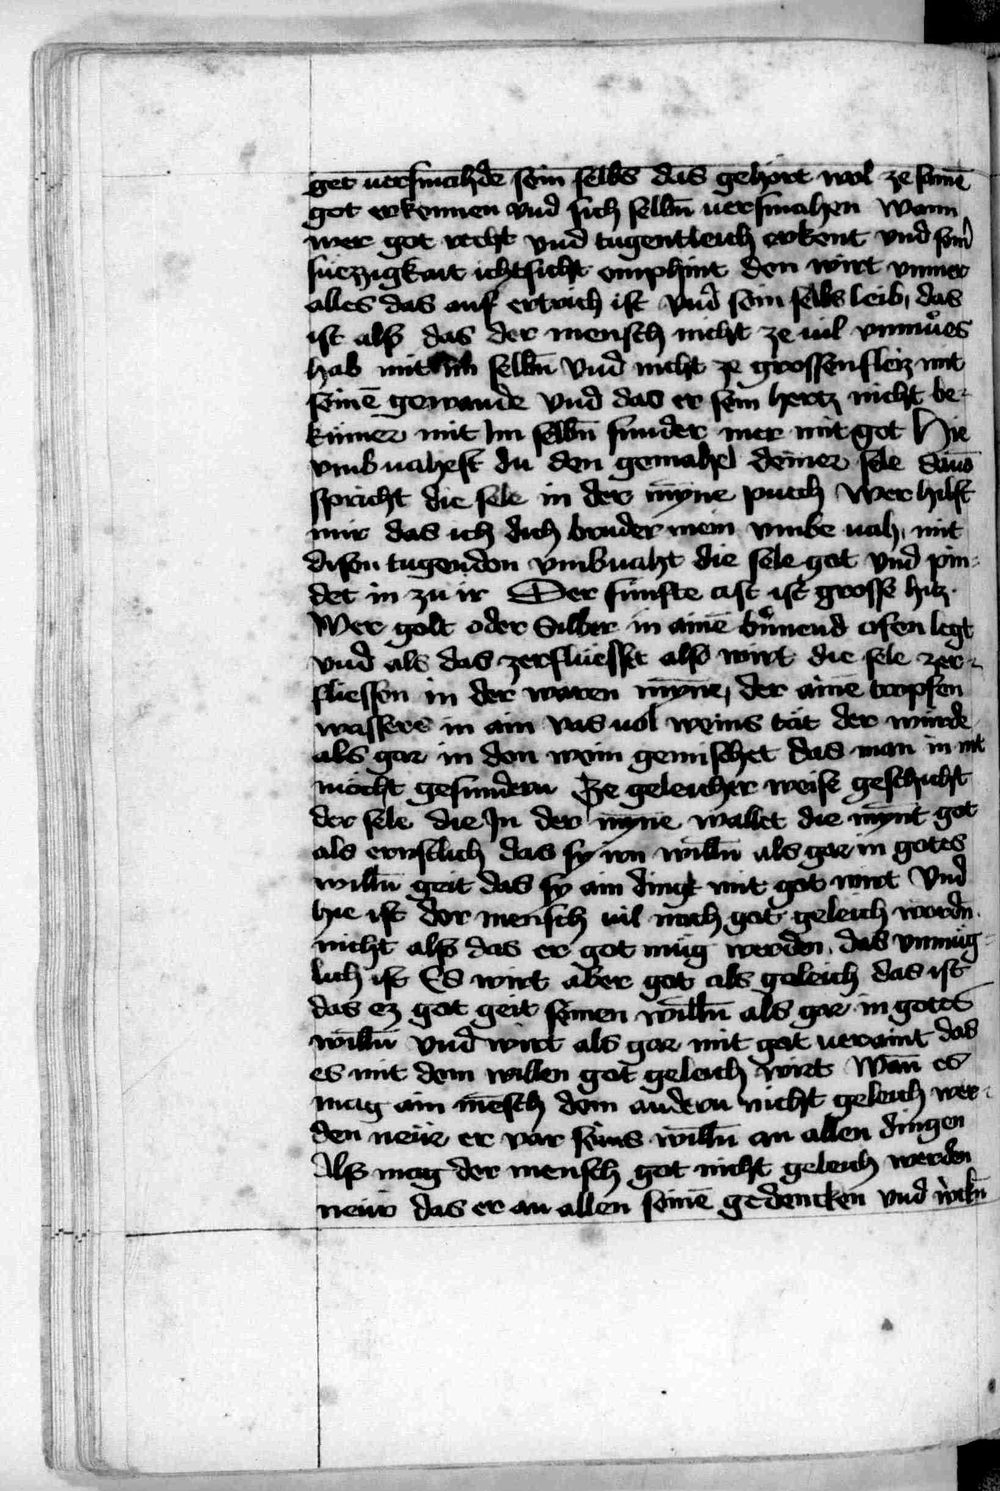 get uersmachde sein selbs das gehört wol ze samē
got erkennen vnd sich selbn̄ uersmahen Wann
wer got recht vnd tugentleich erkent vnd sein̄
süezzigkait ichtsicht emphint den wirt vnmer
alles das auf ertrich ist Vnd sein selbs leib, das
ist alss das der mensch nicht ze uil vnmůes
hab mit im selbn̄ Vnd nicht ze grossen fleiz mit
seinē gewande Vnd das er sein hertz nicht be-
kümer mit Im selbn̄ sunder mer mit got Hie
vmbuahest du den gemahel deiner sele dauō
spricht die sele in der myne puech Wer hilft
mir das ich dich bruder mein vmbe uah, mit
disen tugenden vmbuaht die sele got vnd pin-
det in zu ir Der fünfte ast ist grosse hitz.
Wer golt oder Silber in ainē brinnend ofen legt
vnd als das zerflüesset also wirt die sele zer-
fliessen in der waren myne, der ainē tropfen
wassers in ain vas uol weins tät der würde
als gar in den wein gemischet das man in nit
möcht gesundern Ze geleicher weise geschicht
der sele die In der myne wallet die mynt got
als ernstlich das sy irn willn̄ als gar in gotes
willn̄ geit das sy ain dingk mit got wirt Vnd
hie ist der mensch uil nach got geleich wordn̄.
nicht alss das er got müg werden. das vnmüg-
lich ist Es wirt aber got als geleich das ist
das ez got geit seinen willn̄ als gar in gotes
willn̄ vnd wirt als gar mit got ueraint das
es mit dem willen got geleich wirt Wan̄ es
mag ain mēsch dem andern nicht geleich wer-
den neür er var seins willn̄ an allen dingen
Alss mag der mensch got nicht geleich werden
neür das er an allen seinē gedencken vnd wërkn̄